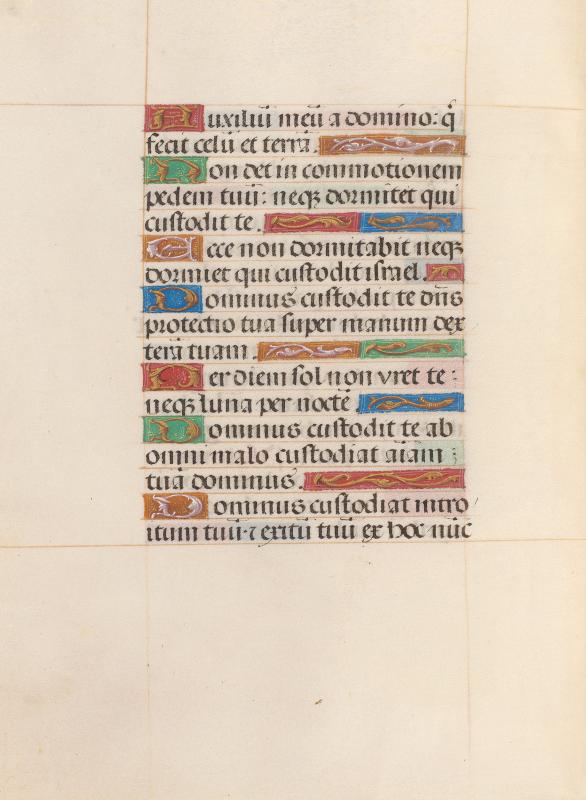 Auxiliū meū a domino: q̄
fecit celū et terrā.
Non det in commotionem
pedem tuū: neqꝫ dormitet qui
custodit te.
Ecce non dormitabit neqꝫ
dormiet qui custodit israel.
Dominus custodit te dn̄s
protectio tua super manum dex
terā tuam.
Per diem sol non vret te:
neqꝫ luna per noctē
Dominus custodit te ab
omni malo custodiat aīam
tuā dominus.
Dominus custodiat intro
itum tuū ⁊ exitū tuū ex hoc nūc